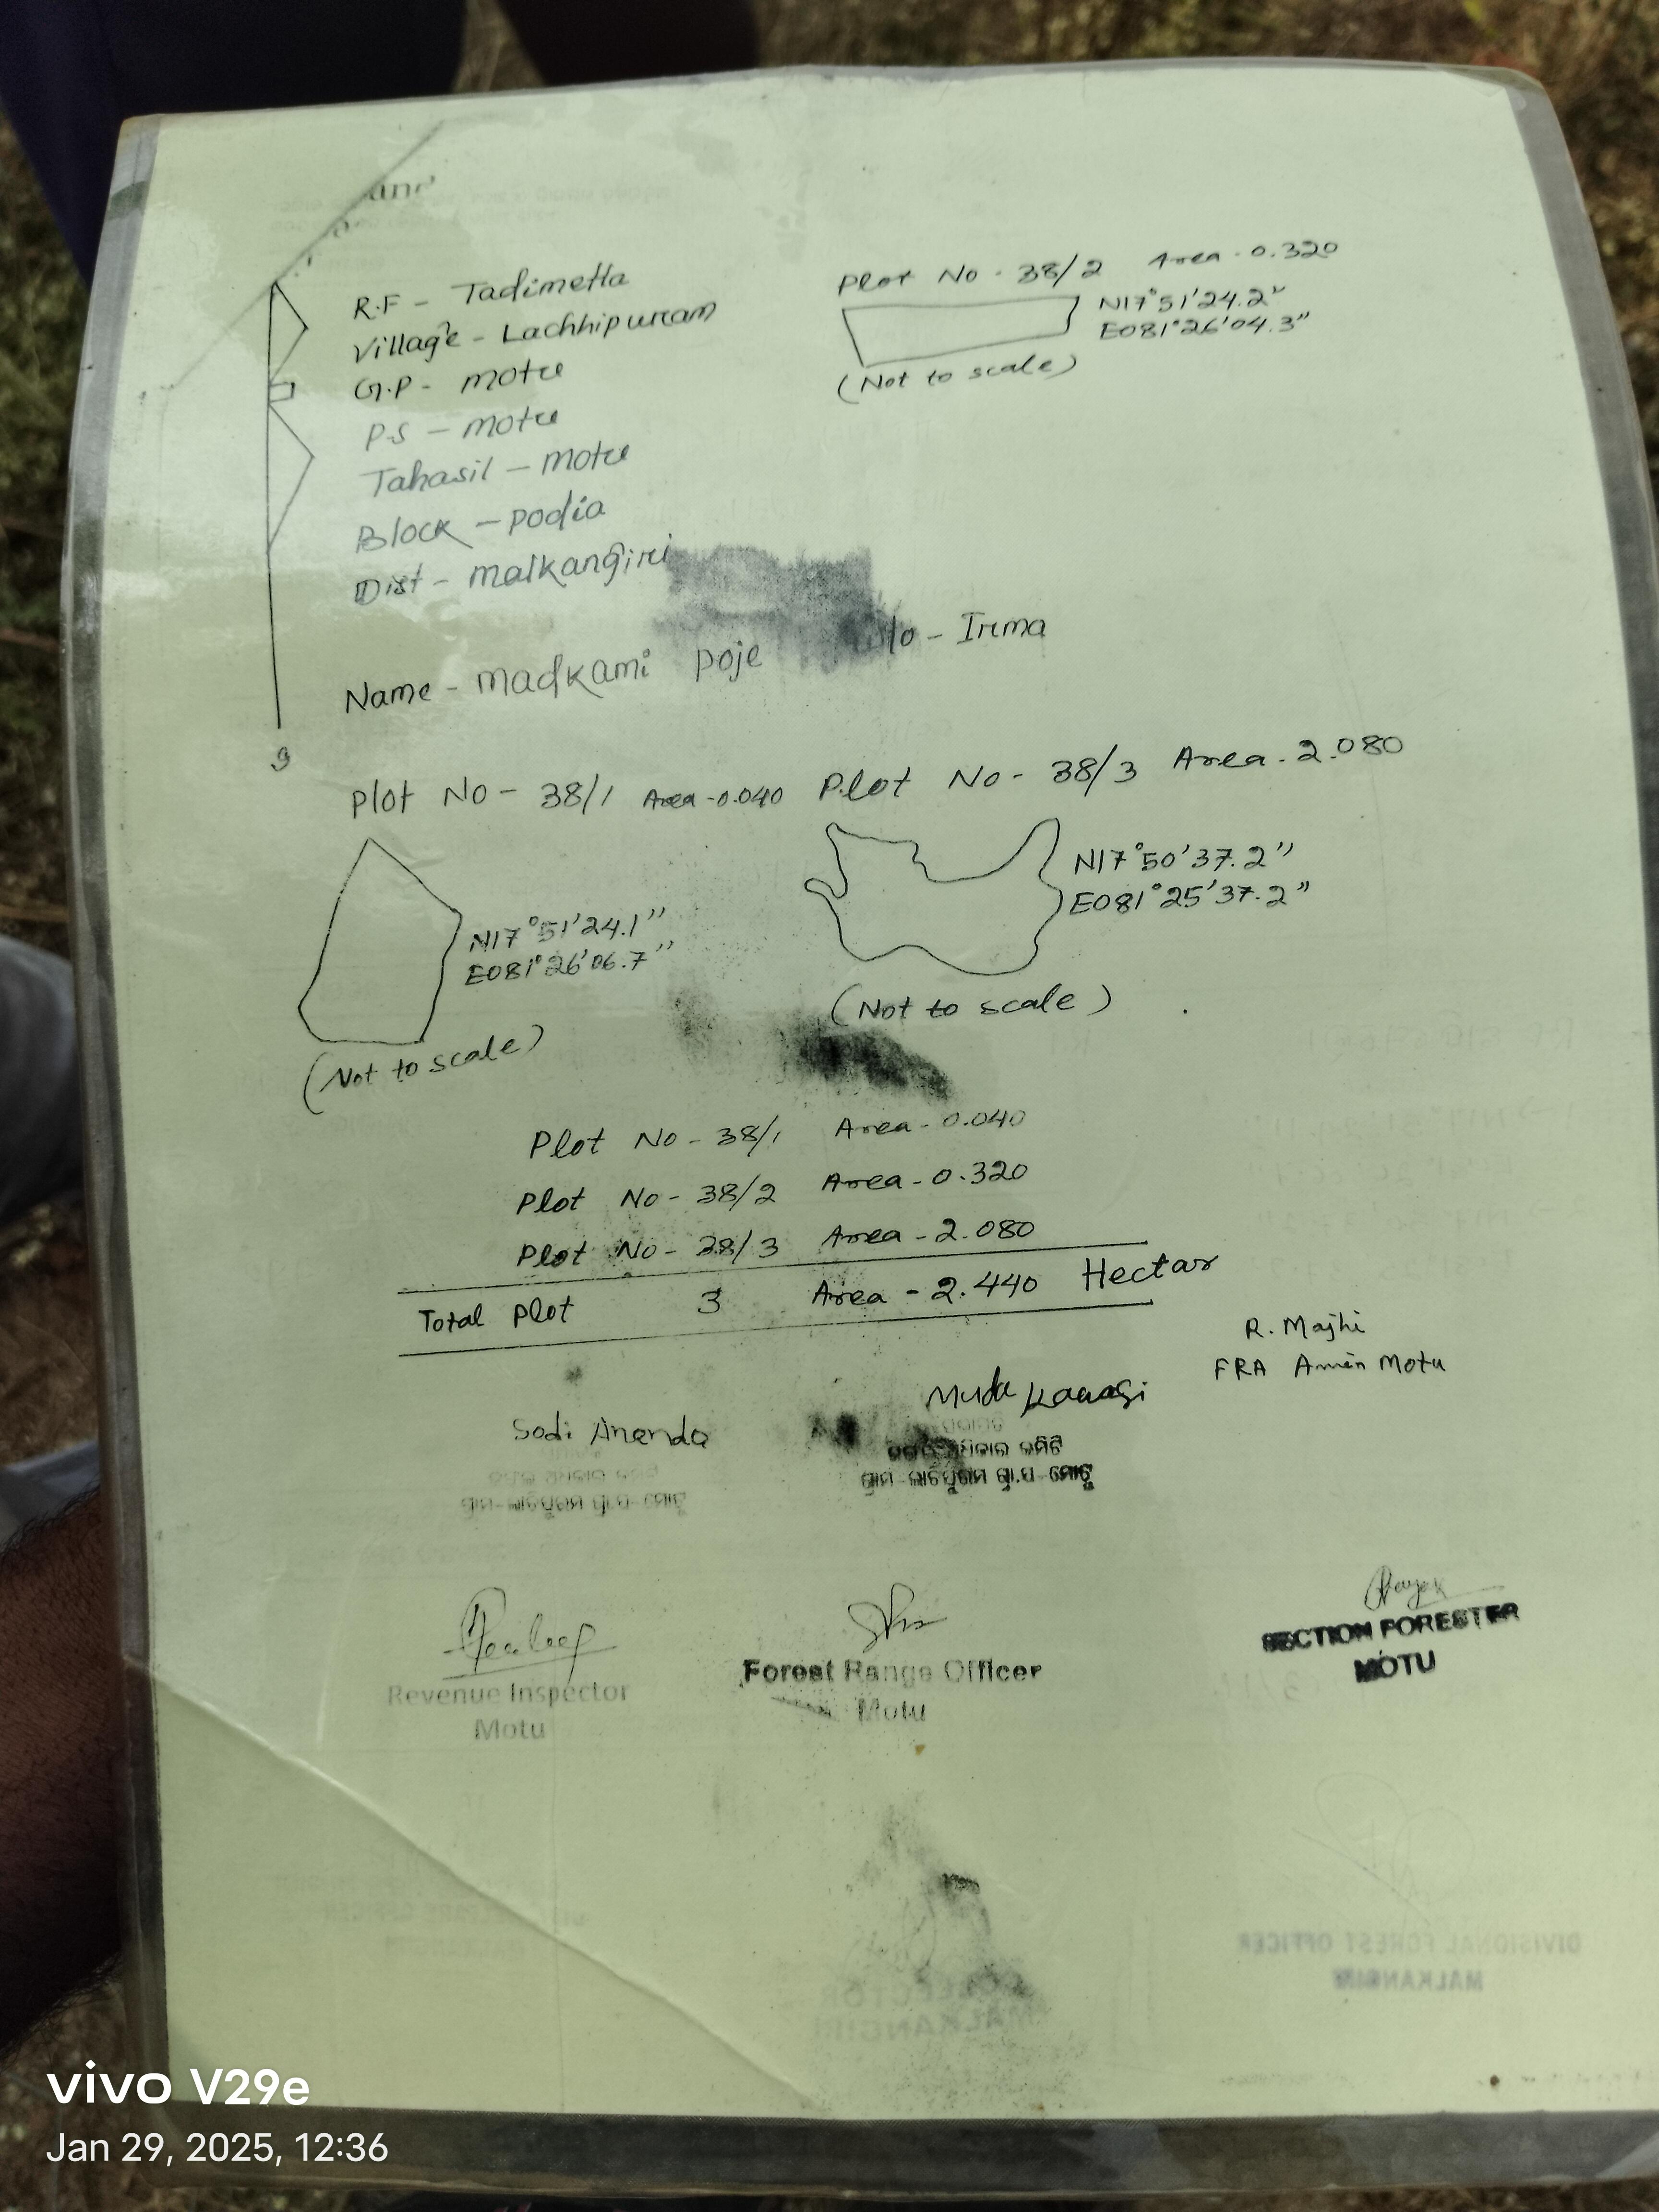 R.F - Tadimetla
Village - Lachhipuram
G.P - motu
P.S - motu
Tahasil - motu
Block - podia
Dist - malkangiri
Plot No - 38/2 Area - 0.320
N17°51'24.2"
E081°26'04.3"
(Not to scale)
Name - madkami poje - Irma
9
Plot No - 38/1 Area - 0.040
N17°51'24.1"
E081°26'06.7"
(Not to scale)
Plot No - 38/3 Area - 2.080
N17°50'37.2"
E081°25'37.2"
(Not to scale)
Plot No - 38/1 Area - 0.040
Plot No - 38/2 Area - 0.320
Plot No - 38/3 Area - 2.080
Total plot 3 Area - 2.440 Hectar
R. Majhi
FRA Amin Motu
Sodi Ananda
Muda Kawasi
Revenue Inspector
Motu
Forest Range Officer
Motu
SECTION FORESTER
MOTU
DIVISIONAL FOREST OFFICER
MALKANGIRI
COLLECTOR
MALKANGIRI
vivo V29e
Jan 29, 2025, 12:36